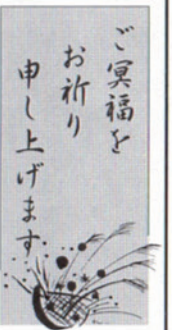 ご冥福を
お祈り
申し上げます